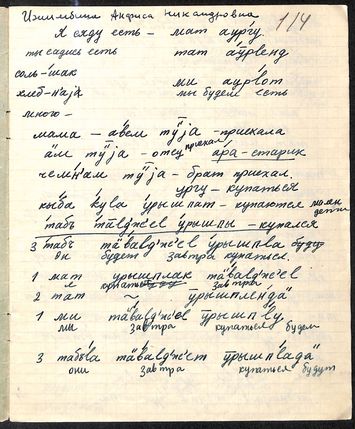 Изимбина Анфиса Никандровна
1/4
Я ехду есть – мат аургу.
ты садись есть тат аӯрвенд
соль – шак ми аурвот
хлеб – н'аjа мы будем есть
много –
мама – а̄вем тӯjа – приехала
а̄м тӯjа – отец приехал а́ра – старик
чем'н'ам тӯjа – брат приехал.
ургу – купаться
кы̄ба кула ӯрышпат – купаются маленькие дети
табъ тӓвалд'жел ӯрышпы – купался
3 табъ тӓвалд'же'ел ӯрышпва
он будет завтра купаться.
1 мат урышплак тӓвалд'же'ел
я купаться завтра
2 тат ~ урышпленда"
1 ми тӓвалд'же'ел ӯрышпву
мы завтра купаться будем
3 табы́ла тӓвалд'же'ет ӯрышпвада"
они завтра купаться будут